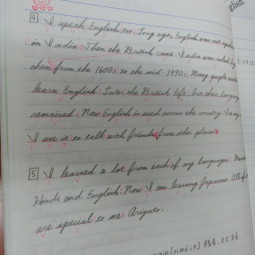 4 I speak English too. Long ago, English was not spoken
in India. Then the British came. India was ruled by
them from the 1600s to the mid-1990s. Many people
learn English. Later the British left, but their language
remained. Now English is used across the country.
I use it to talk with friends from other places
5 I learned a lot from each of my languages.
Hindi and English. Now I am learning Japanese. All
are special to me. Arigato.